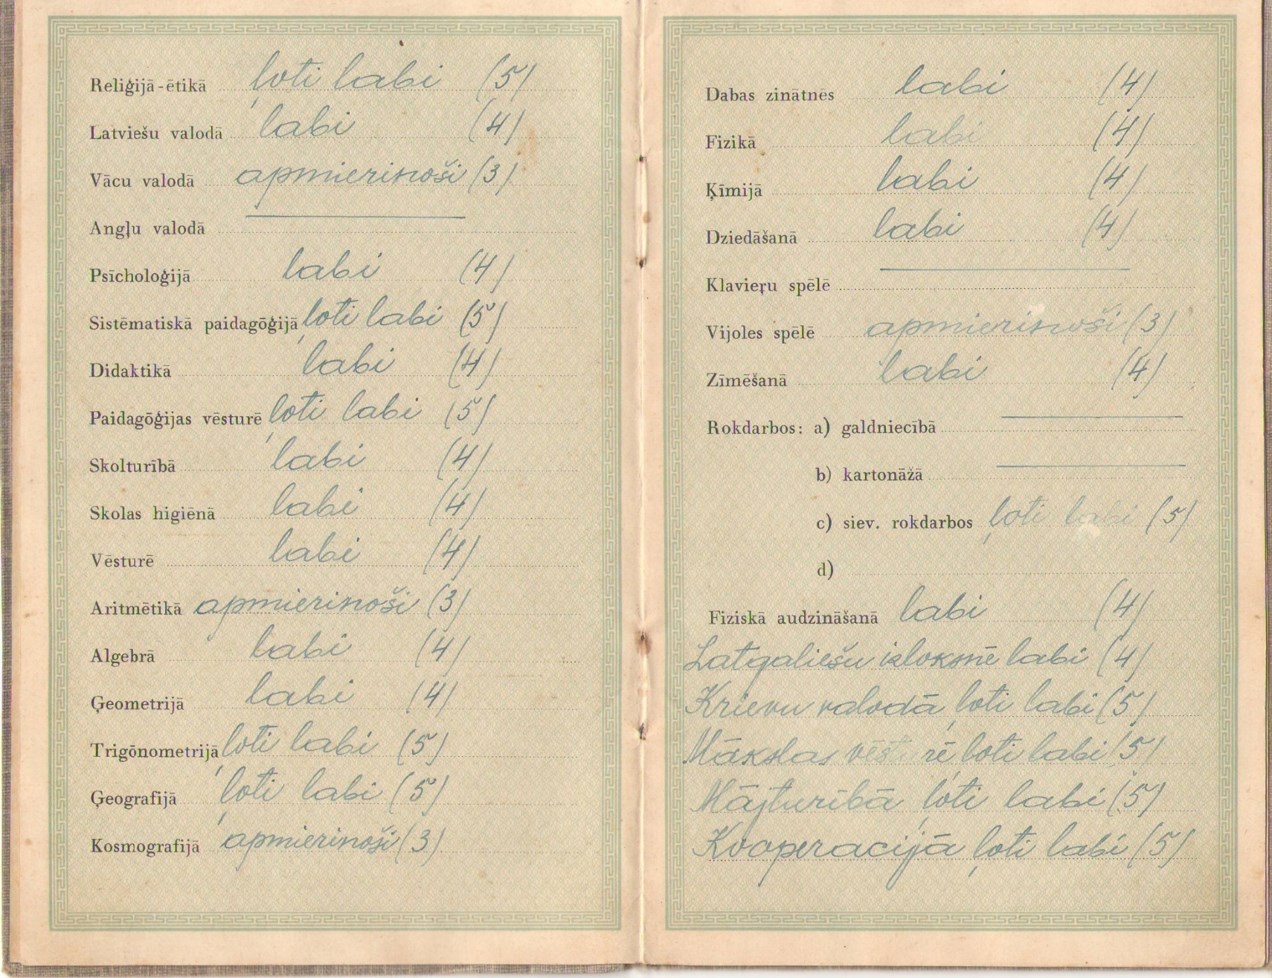 Reliģijā-ētikā ļoti labi (5)
Latviešu valodā labi (4)
Vācu valodā apmierinoši (3)
Angļu valodā
Psīcholoģijā labi (4)
Sistēmatiskā paidagōģijā ļoti labi (5)
Didaktikā labi (4)
Paidagōģijas vēsturē ļoti labi (5)
Skolturībā labi (4)
Skolas higiēnā labi (4)
Vēsturē labi (4)
Aritmētikā apmierinoši (3)
Algebrā labi (4)
Ģeometrijā labi (4)
Trigōnometrijā ļoti labi (5)
Ģeografijā ļoti labi (5)
Kosmografijā apmierinoši (3)
Dabas zinātnēs labi (4)
Fizikā labi (4)
Ķīmijā labi (4)
Dziedāšanā labi (4)
Klavieŗu spēlē
Vijoles spēlē apmierinoši (3)
Zīmēšanā labi (4)
Rokdarbos: a) galdniecībā
b) kartonāžā
c) siev. rokdarbos ļoti labi (5)
d)
Fiziskā audzināšanā labi (4)
Latgaliešu izloksnē labi (4)
Krievu valodā ļoti labi (5)
Mākslas vēsturē ļoti labi (5)
Mājturībā ļoti labi (5)
Kooperacijā ļoti labi (5)